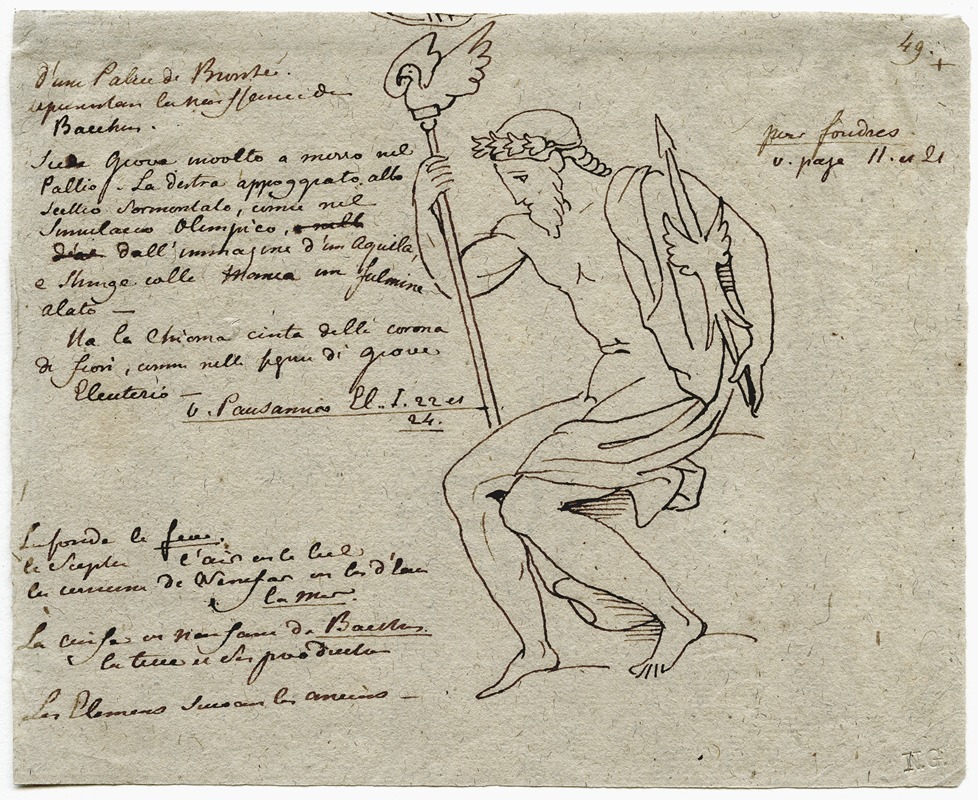 49.
d'une Patere de Bronze.
la naissance de
Bacchus.
pour foudres.
v. page 11. et 21
Siede Giove involto a mezzo nel
Pallio. La destra appoggiata allo
Scettro sormontato, come nel
Simulacro Olimpico,
dall'immagine d'un Aquila,
e stringe colla manca un fulmine
alato —
Ha la Chioma cinta della corona
di fiori, come nella figura di Giove
Eleuterio —
v. Pausanias El. I. 22 et
24.
La foudre le feu.
le Sceptre l'air et le Ciel
la couronne de Nenufar et les d'Eau
la Mer.
La cuisse et naissance de Bacchus
la terre et ses productions
Les Elemens suivant les anciens —
N.G.